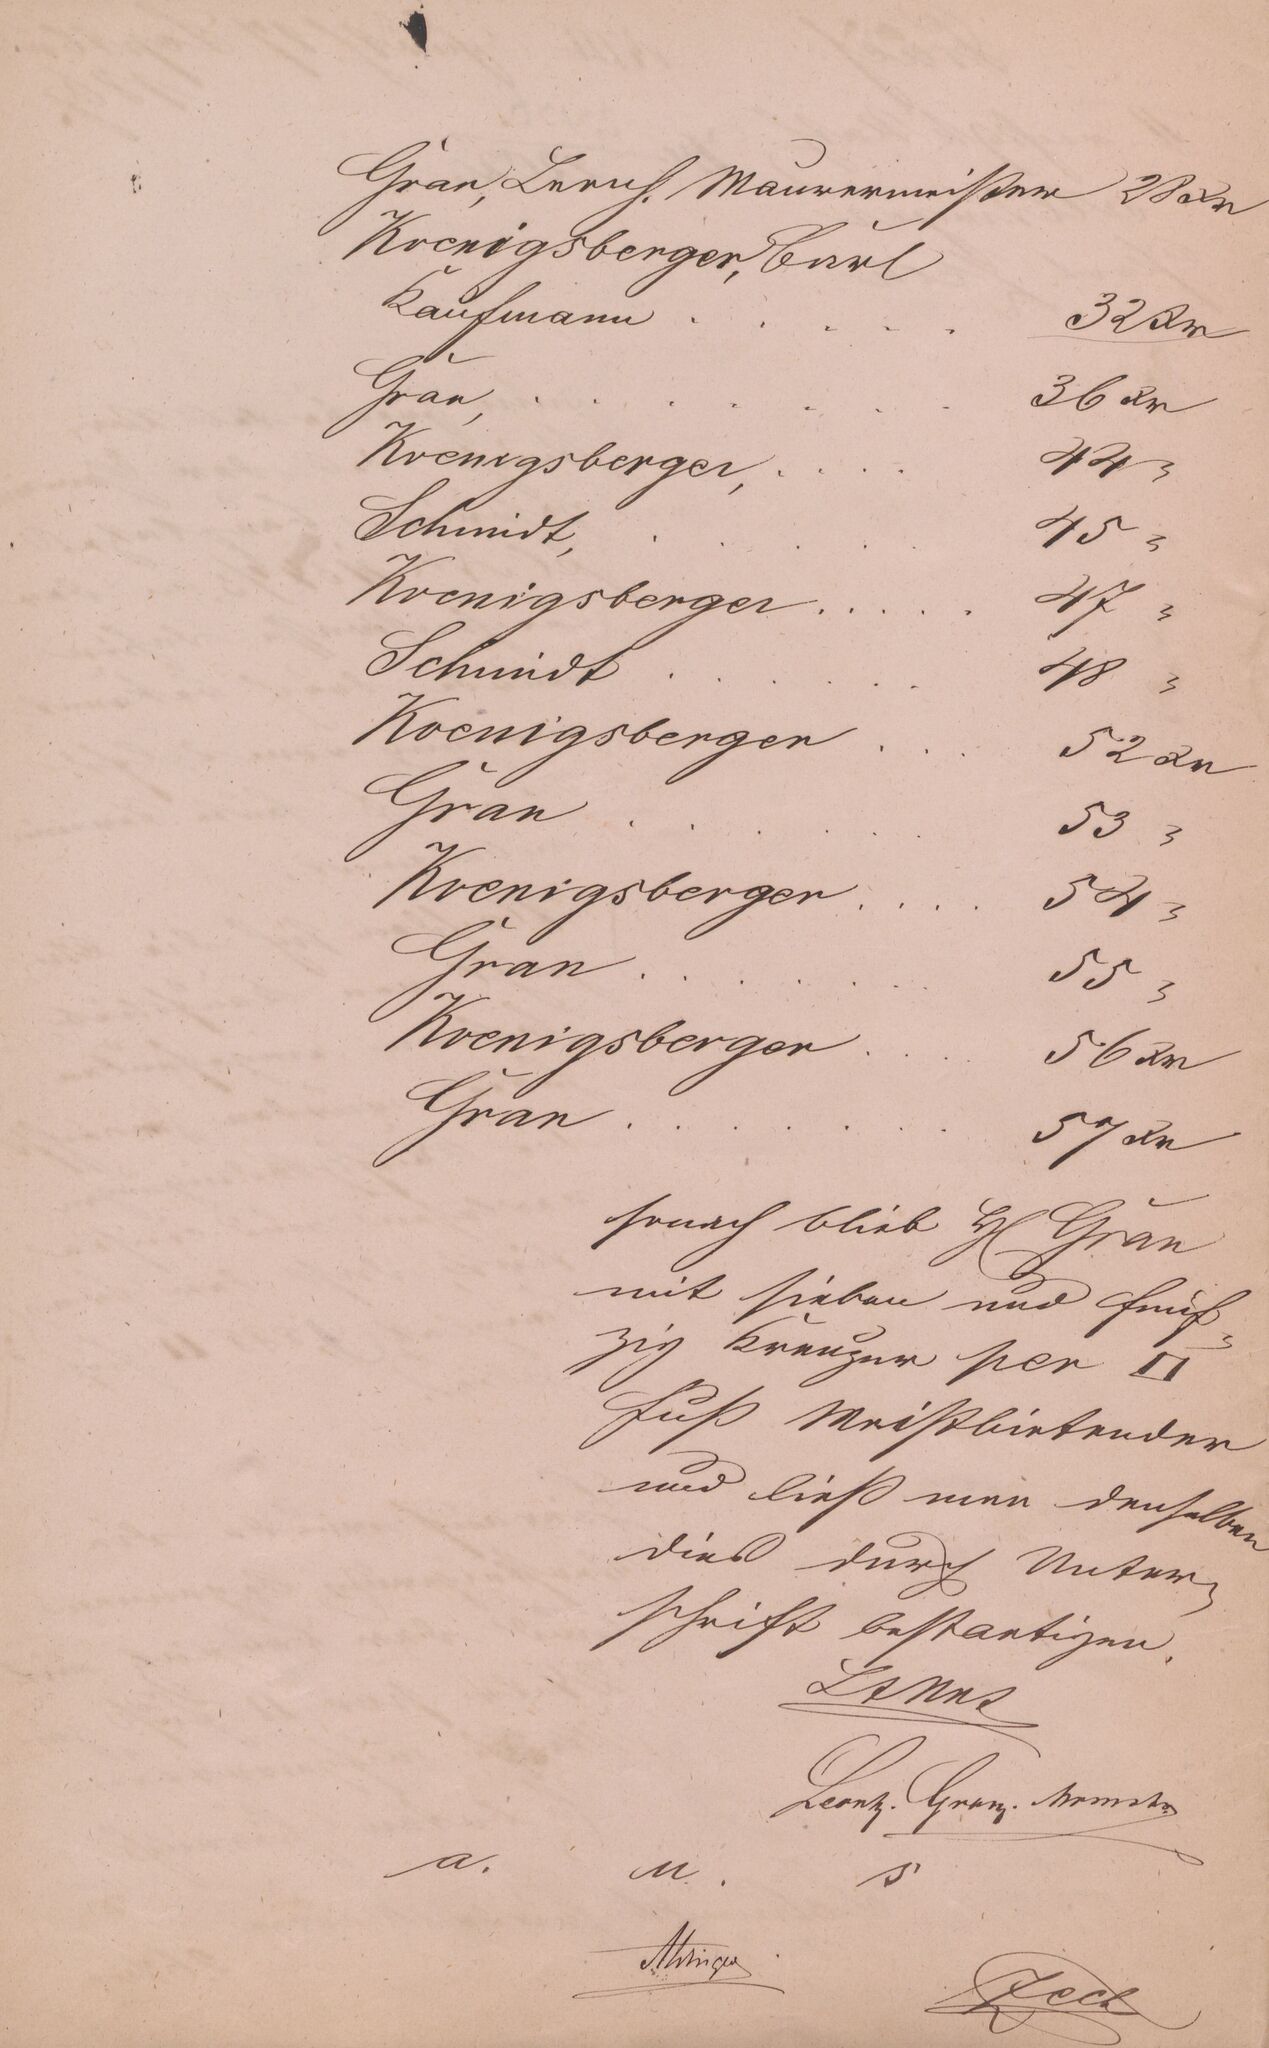 Gran, Leonh. Maurermeister 28 Kr
Koenigsberger, Carl
Kaufmann . . . . . 32 Kr
Gran, . . . . . . . 36 Kr
Koenigsberger, . . . . 44 "
Schmidt, . . . . . . 45 "
Koenigsberger . . . . . 47 "
Schmidt . . . . . . 48 "
Koenigsberger . . . 52 Kr
Gran . . . . . . 53 "
Koenigsberger . . . . 54 "
Gran . . . . . . . 55 "
Koenigsberger . . . . 56 Kr
Gran . . . . . . . . 57 Kr
sonach blieb H Gran
mit sieben und fünf-
zig Kreuzer per □
Fuß Meistbietender
und ließ man denselben
dies durch Unter-
schrift bestaetigen.
Leonh. Gran.
a. u. s
Zech